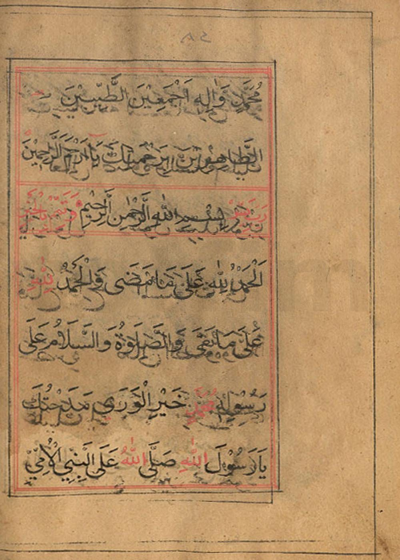 محمد واله اجمعين الطيبين
الطاهرين برحمتك يا ارحم الراحمين
بسم الله الرحمن الرحيم
الحمد لله على ما مضى والحمد
على ما بقى والصلوة والسلام على
رسوله محمد خير الورى مدحتك
يا رسول الله صلى الله على النبي الامي